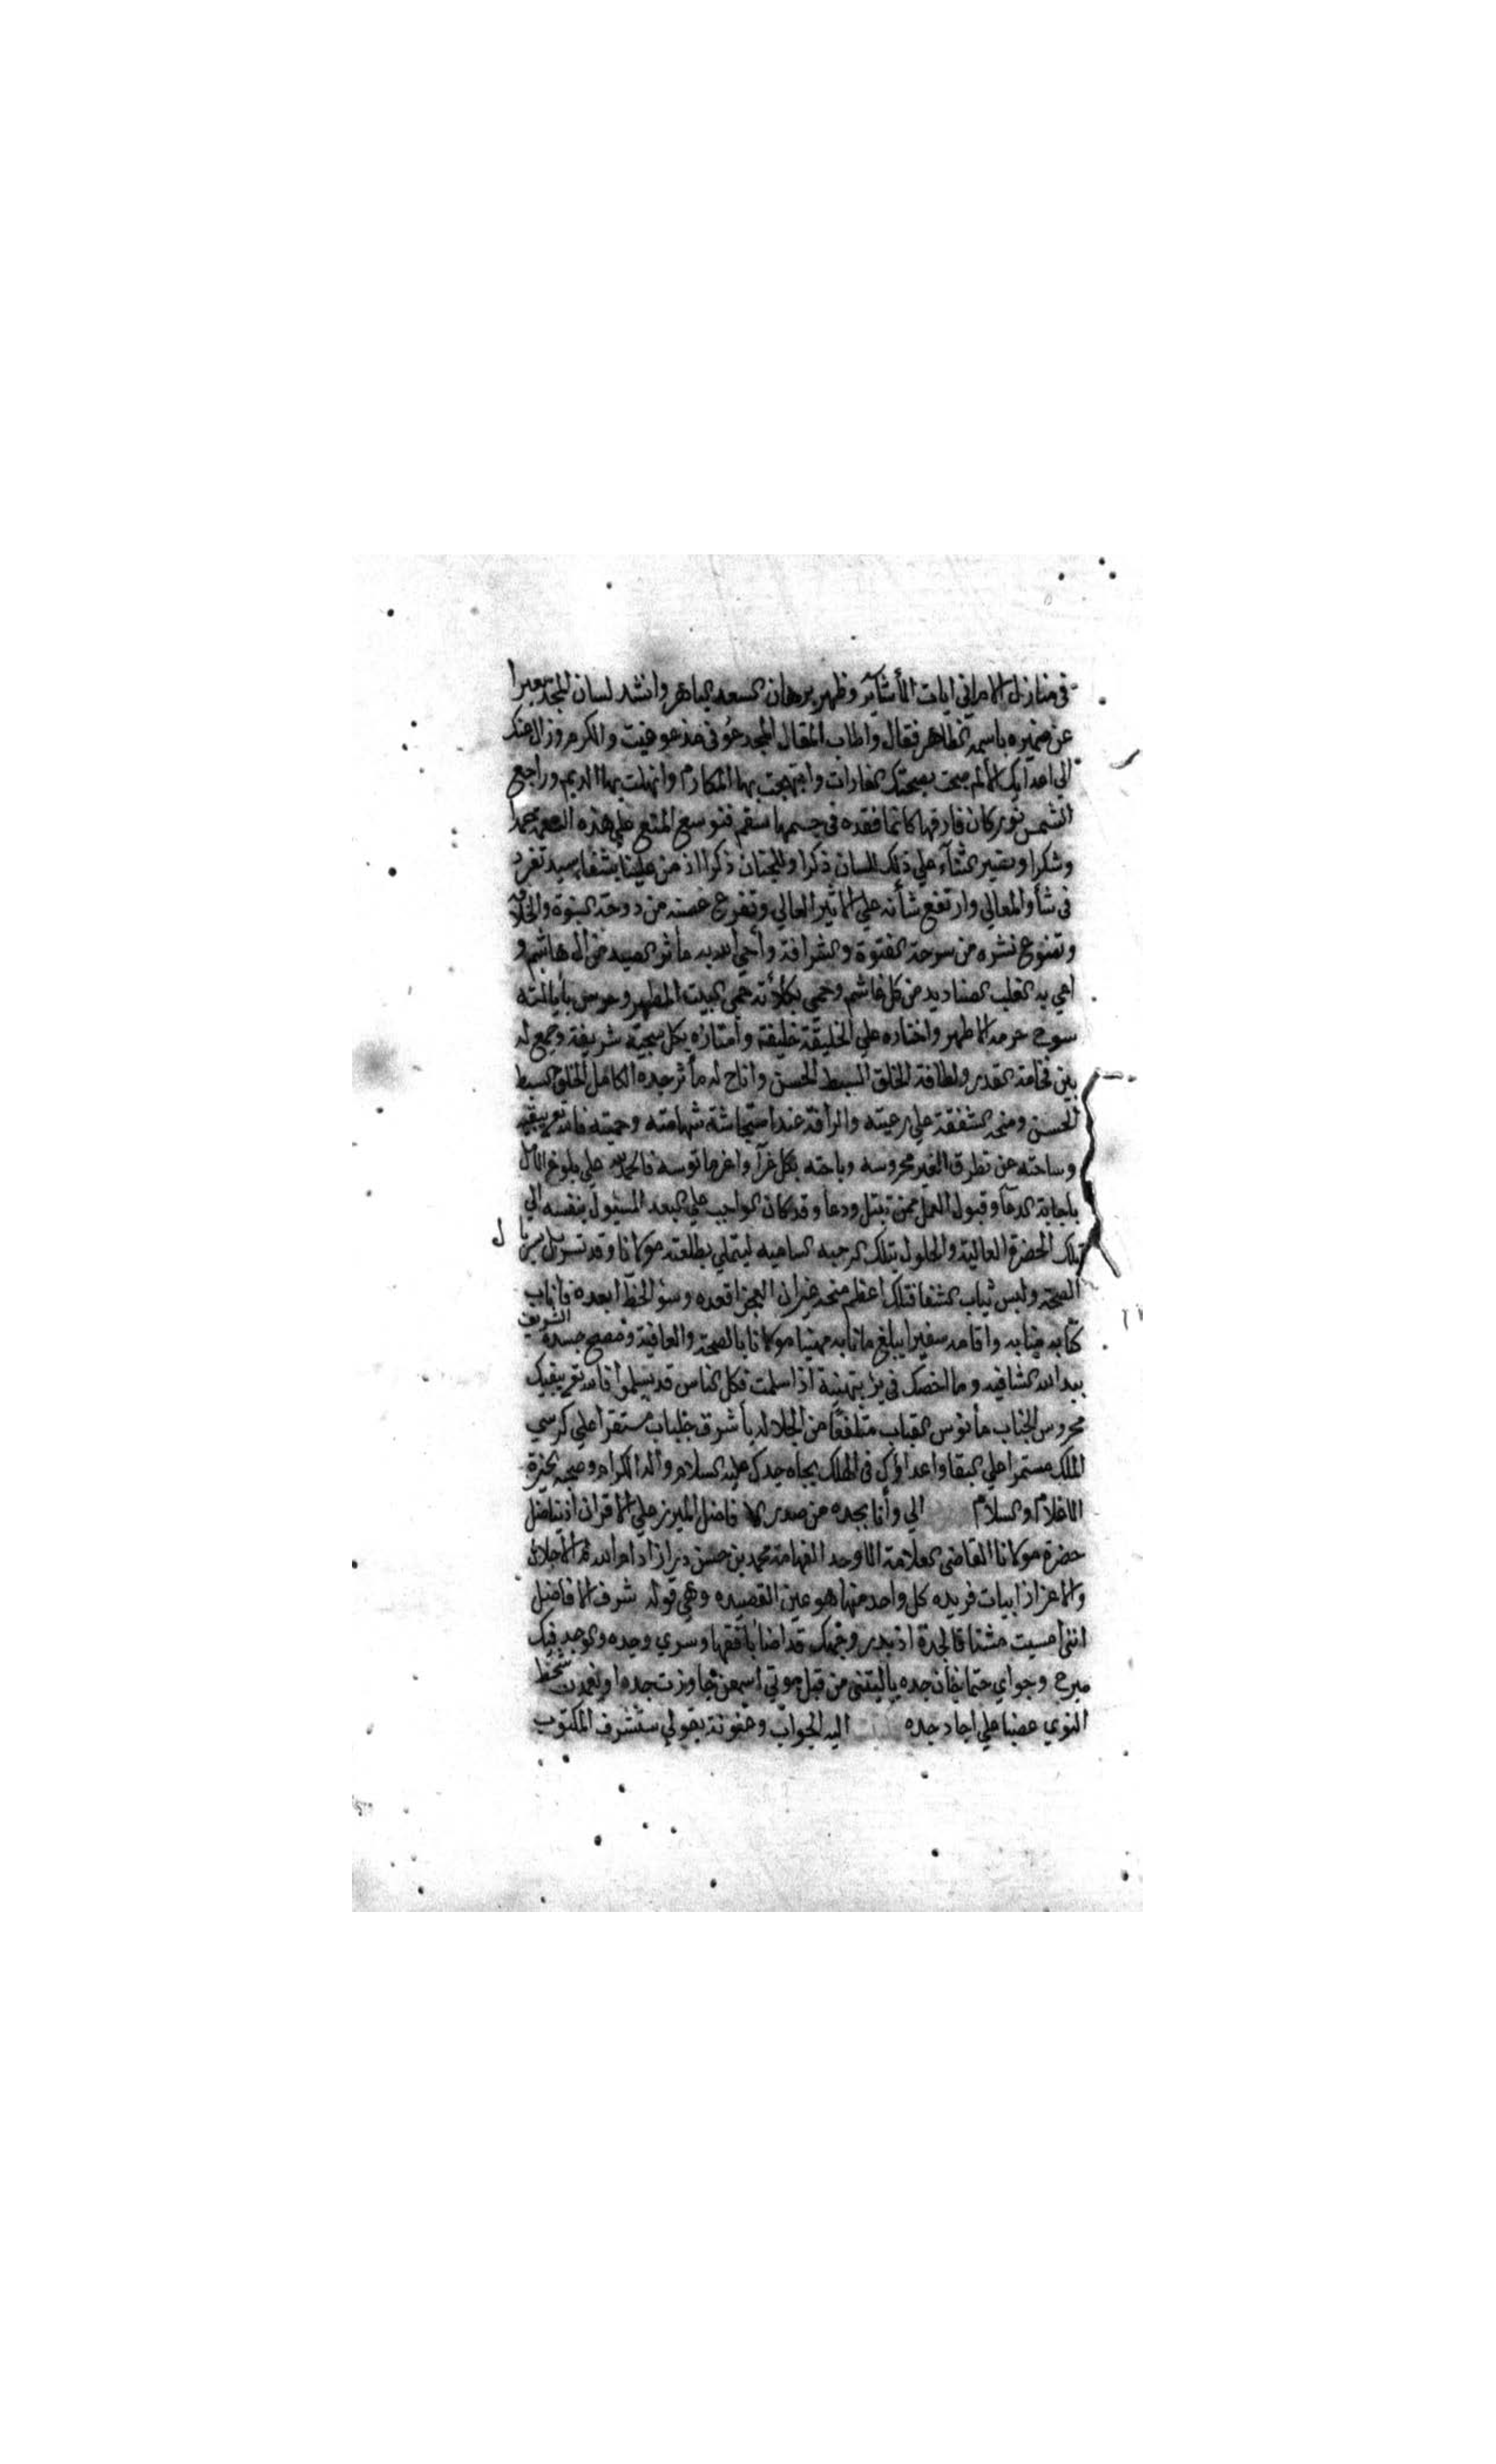 في منازل الاماني ايات البشاير وظهر برهان السعد الباهر وانشد لسان المجد معبرا
عن ضميره باسمه الظاهر فقال واطاب المقال المجد عوفي مذ عوفيت والكرم وزال عنك
الي اعدايك الالم صحت بصحتك الغارات وابتهجت بها المكارم وانهلت بها الديم وراجع
الشمس نور كان فارقها كانما فقده في جسمها سقم
وشكرا ونصير الثناء علي ذلك للسان ذكرا وللجنان ذكرا اذ من علينا بشفا سيد تفرد
في شأو المعالي وارتفع شأنه علي الاثير العالي وتفرع غصنه من دوحة النبوة والخلافة
وتضوع نشره من سوحة الفتوة والشرافة وأحيي الله به مأثر الصيد من أل هاشم و
الصناديد من كل غاشم وحمي بكلأته حمي البيت المطهر وحرس بأيالته
سوح حرمه الاطهر واختاره علي الخليقة خليفة وامتازه بكل سجية شريفة وجمع له
بين فخامة القدر ولطافة الخلق البسيط الحسن واتاح له مأثر جده الكامل الخلق البسط
الحسن ومنحه الشفقة علي رعيته والرأفة عند استجاشة شهامته وحميته فالله تع يبقيه
وساحته عن تطرق الغير محروسه وباحته بكل غرا واغر مانوسه فالحمد لله علي بلوغ الامل
باجابة الدعا وقبول العمل ممن تبتل ودعا وقد كان الواجب علي العبد المثول بنفسه الي
تلك الحضرة العالية والحلول بتلك الرحبه الساميه ليتملي بطلعة مولانا وقد تسربل سربال
الصحة ولبس ثياب الشفا فتلك اعظم منحه غير ان العجز اقعده وسؤ الحظ ابعده فأناب
كتابه منابه واقامه سفيرا يبلغ ما نابه مهنيا مولانا بالصحة والعافية ومصح جسده الشريف
بيد الله الشافيه وما اخصك في برء بتهنية اذا سلمت فكل الناس قد سلموا فالله تع يبقيك
محروس الجناب مأنوس القباب متلفعا من الجلاله بأشرف جلباب مستقرا علي كرسي
الملك مستمرا علي البقا واعداؤك في الهلك بجاه جدك عليه السلام وأله الكرام وصحبه الخيرة
الاعلام والسلام الي وأنا بجده من صدر الافاضل المبرز علي الاقران اذ يناضل
حضرة مولانا القاضي العلامة الاوحد الفهامة محمد بن حسن دراز ادام الله له الاجلال
والاعزاز ابيات فريده كل واحد منها هو عين القصيده وهي قوله شرف الافاضل
انني امسيت مشتاقا لجدة اذ بدر وجهك قد اضا بأفقها وسري وحده والوجد فيك
مبرح وجواي حتما خان جده ياليتني من قبل موتي اسمعن جاوزت جده او نغمدن شحط
النوي عضبا علي اجاد حده اليه الجواب وعنونة بقولي ستشرف المكتوب